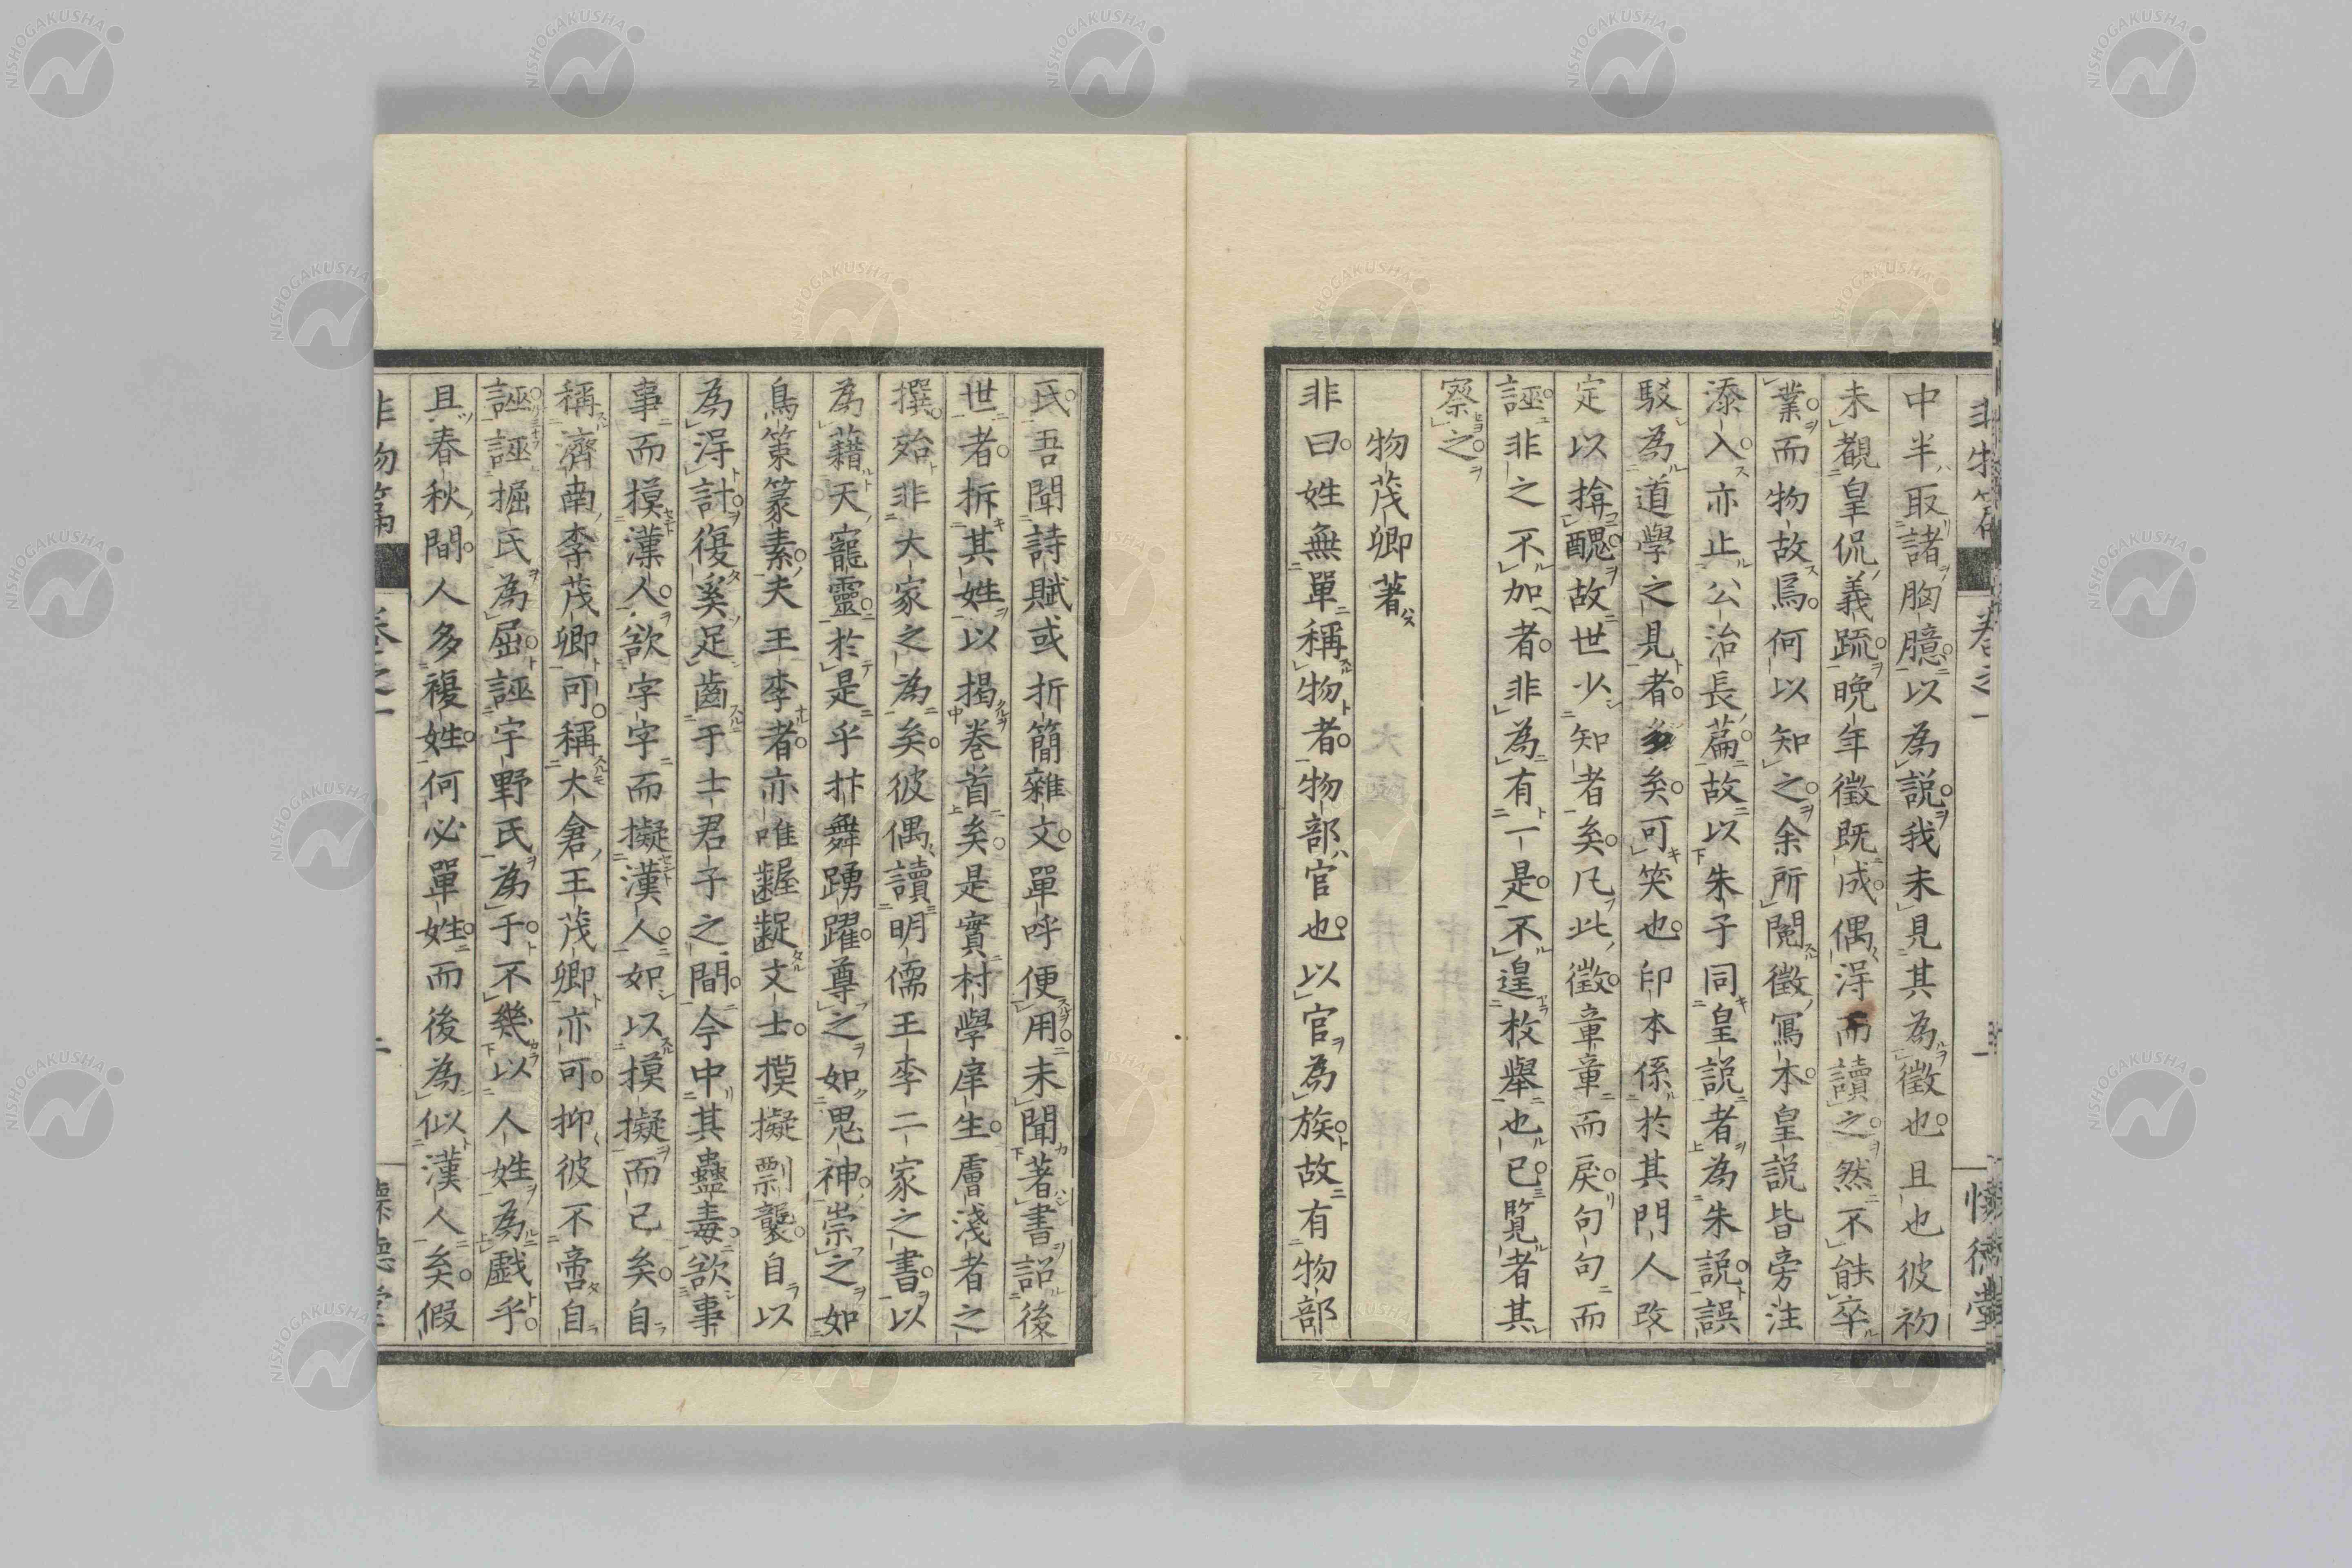 中半取諸胸臆以為說我未見其為徵也且也彼初
未覩皇侃義疏晚年徵既成偶得而讀之然不能卒
業而物故焉何以知之余所閱徵寫本皇說皆旁注
添入亦止公治長篇故以朱子同皇說者為朱說誤
駁為道學之見者多矣可笑也印本係於其門人改
定以揜醜故世少知者矣凡此徵章章而戾句句而
誣非之不加者非為有一是不遑枚舉也已覽者其
察之
物茂卿著
非曰姓無單稱物者物部官也以官為族故有物部
氏吾聞詩賦或折簡雜文單呼便用未聞著書詔後
世者拆其姓以揭卷首矣是實村學庠生膚淺者之
撰殆非大家之為矣彼偶讀明儒王李二家之書以
為藉天寵靈於是乎抃舞踴躍尊之如鬼神崇之如
鳥策篆素夫王李者亦唯齷齪文士摸擬剽襲自以
為得計復奚足齒于士君子之間今中其蠱毒欲事
事而摸漢人欲字字而擬漢人如以摸擬而已矣自
稱濟南李茂卿可稱大倉王茂卿亦可抑彼不啻自
誣誣掘氏為屈誣宇野氏為于不幾以人姓為戲乎
且春秋間人多複姓何必單姓而後為似漢人矣假
非物篇 卷之一 二 懷德堂